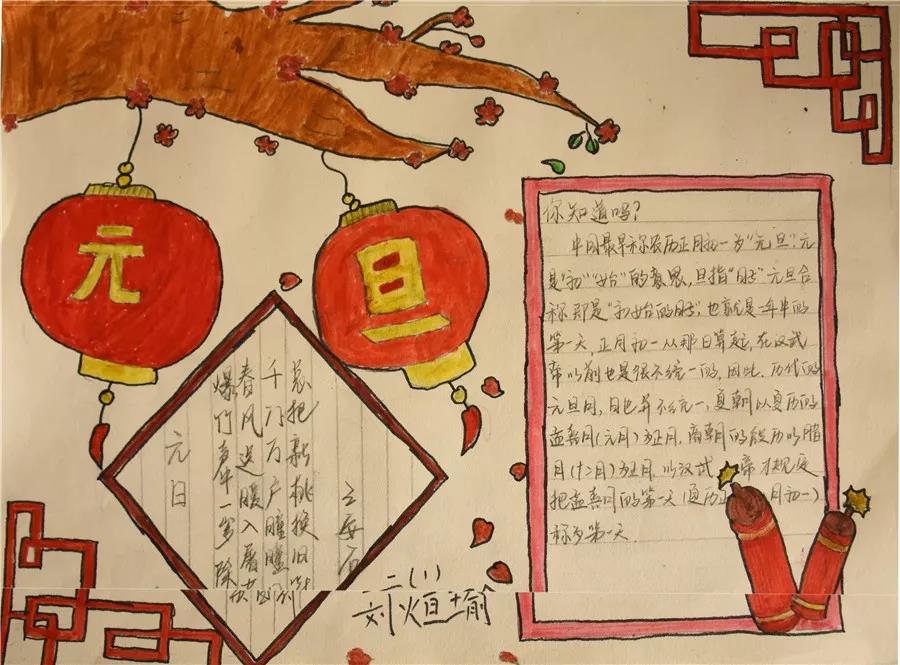 元
旦
元日
爆竹声中一岁除
春风送暖入屠苏
千门万户曈曈
总把新桃换旧
王安石
二(1)
刘烜
你知道吗?
中国最早称农历正月初一为"元旦",元
是"初""始"的意思,旦指"日子"元旦合
称即是"初始的日子",也就是一年中的
第一天,正月初一从那日算起,在汉武
帝以前也是很不统一的,因此,历代的
元旦月,日也并不统一,夏朝以夏历的
孟春月(元月)为正月,商朝的殷历以腊
月(十二月)为正月,以汉武帝才规定
把孟春月的第一天(夏历正月初一)
称为第一天.